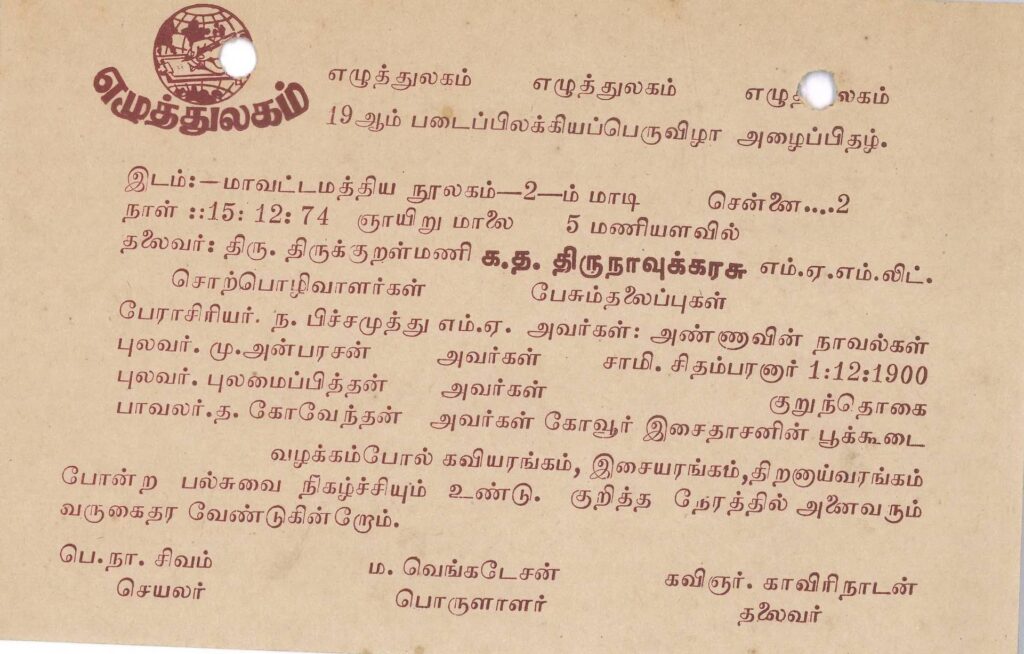 எழுத்துலகம்
எழுத்துலகம் எழுத்துலகம் எழுத்துலகம்
19ஆம் படைப்பிலக்கியப்பெருவிழா அழைப்பிதழ்.
இடம்:—மாவட்டமத்திய நூலகம்—2—ம் மாடி சென்னை....2
நாள் ::15: 12: 74 ஞாயிறு மாலை 5 மணியளவில்
தலைவர்: திரு. திருக்குறள்மணி க.த. திருநாவுக்கரசு எம்.ஏ.எம்.லிட்.
சொற்பொழிவாளர்கள் பேசும்தலைப்புகள்
பேராசிரியர். ந. பிச்சமுத்து எம்.ஏ. அவர்கள்: அண்ணாவின் நாவல்கள்
புலவர். மு.அன்பரசன் அவர்கள் சாமி. சிதம்பரனார் 1:12:1900
புலவர். புலமைப்பித்தன் அவர்கள் குறுந்தொகை
பாவலர்.த. கோவேந்தன் அவர்கள் கோவூர் இசைதாசனின் பூக்கூடை
வழக்கம்போல் கவியரங்கம், இசையரங்கம்,திறனாய்வரங்கம்
போன்ற பல்சுவை நிகழ்ச்சியும் உண்டு. குறித்த நேரத்தில் அனைவரும்
வருகைதர வேண்டுகின்றோம்.
பெ.நா. சிவம் ம. வெங்கடேசன் கவிஞர். காவிரிநாடன்
செயலர் பொருளாளர் தலைவர்